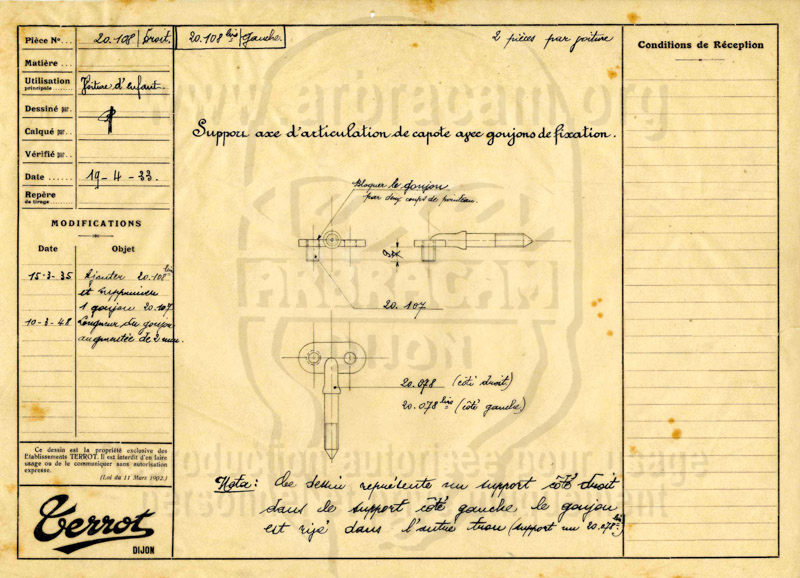 Pièce No... 20.108 Droit. 20.108 bis Gauche. 2 pièces par voiture
Matière ...
Utilisation principale ...... Voiture d'enfant.
Dessiné par.
Calqué par..
Vérifié par..
Date ...... 19-4-33.
Repère de tirage......
MODIFICATIONS
Date Objet
15-3-35 Ajouter 20.108 bis
et supprimer
1 goujon 20.107.
10-3-48 Longueur du goujon
augmentée de 2 mm.
Ce dessin est la propriété exclusive des
Etablissements TERROT. Il est interdit d'en faire
usage ou de le communiquer sans autorisation
expresse.
(Loi du 11 Mars 1902.)
Terrot
DIJON
Support axe d'articulation de capote avec goujons de fixation.
Bloquer le goujon
par deux coups de pointeau.
20.107
20.078 (côté droit)
20.078 bis (côté gauche)
Nota: Ce dessin représente un support côté droit
dans le support côté gauche le goujon
est rivé dans l'autre trou (support nu 20.078 bis)
Conditions de Réception
www.arbracam.org
ARBRACAM
DIJON
reproduction autorisée pour usage
personnel